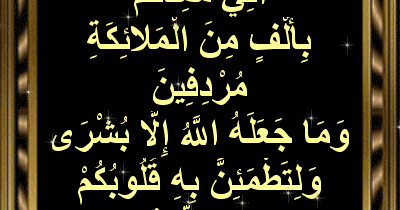 بِأَلْفٍ مِنَ الْمَلَائِكَةِ
مُرْدِفِينَ
وَمَا جَعَلَهُ اللَّهُ إِلَّا بُشْرَى
وَلِتَطْمَئِنَّ بِهِ قُلُوبُكُمْ